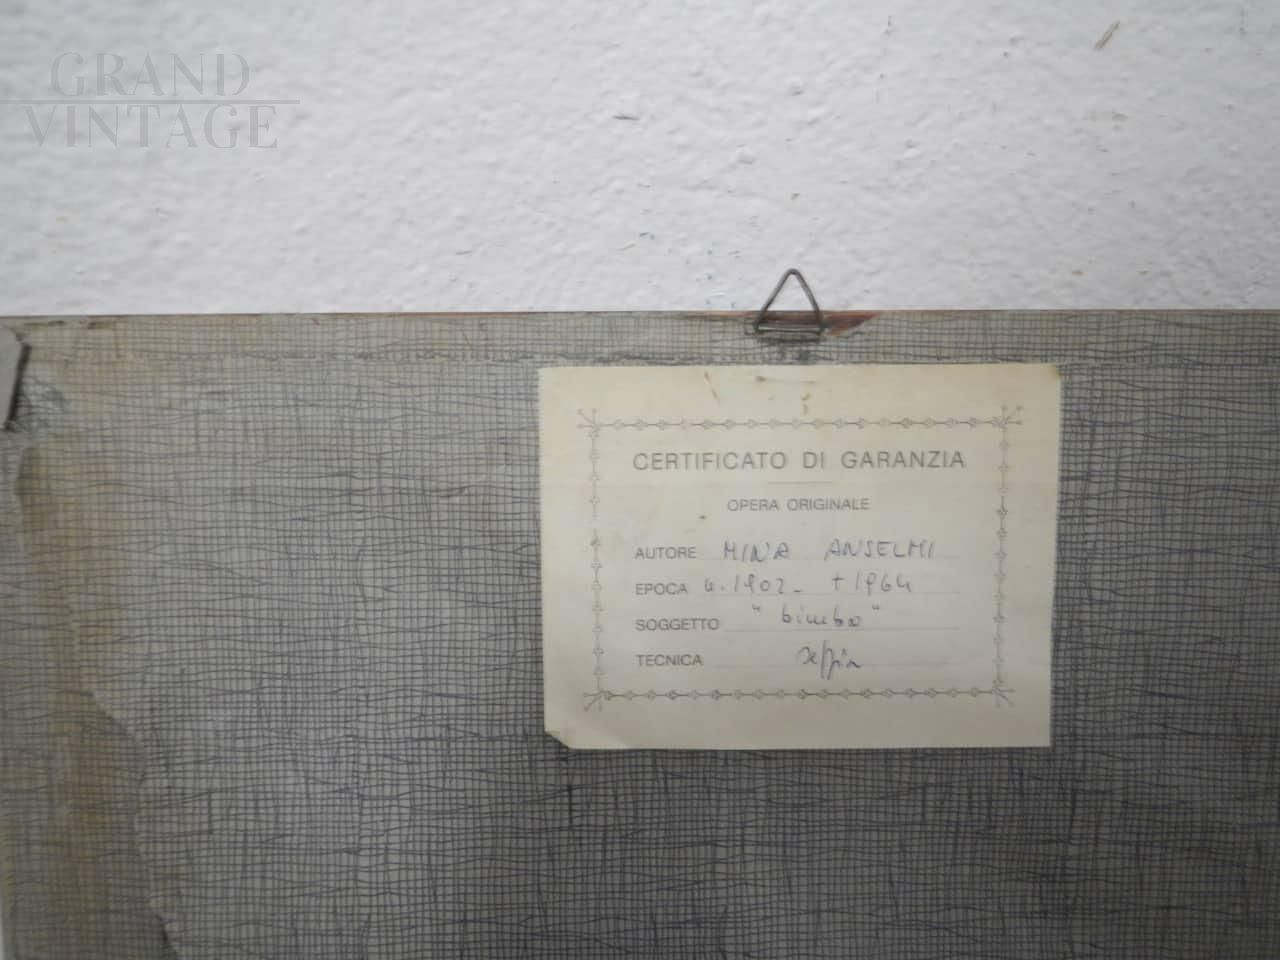 GRAND
VINTAGE
CERTIFICATO DI GARANZIA
OPERA ORIGINALE
AUTORE MINA ANSELMI
EPOCA n. 1902 - + 1964
SOGGETTO "bimbo"
TECNICA seppia